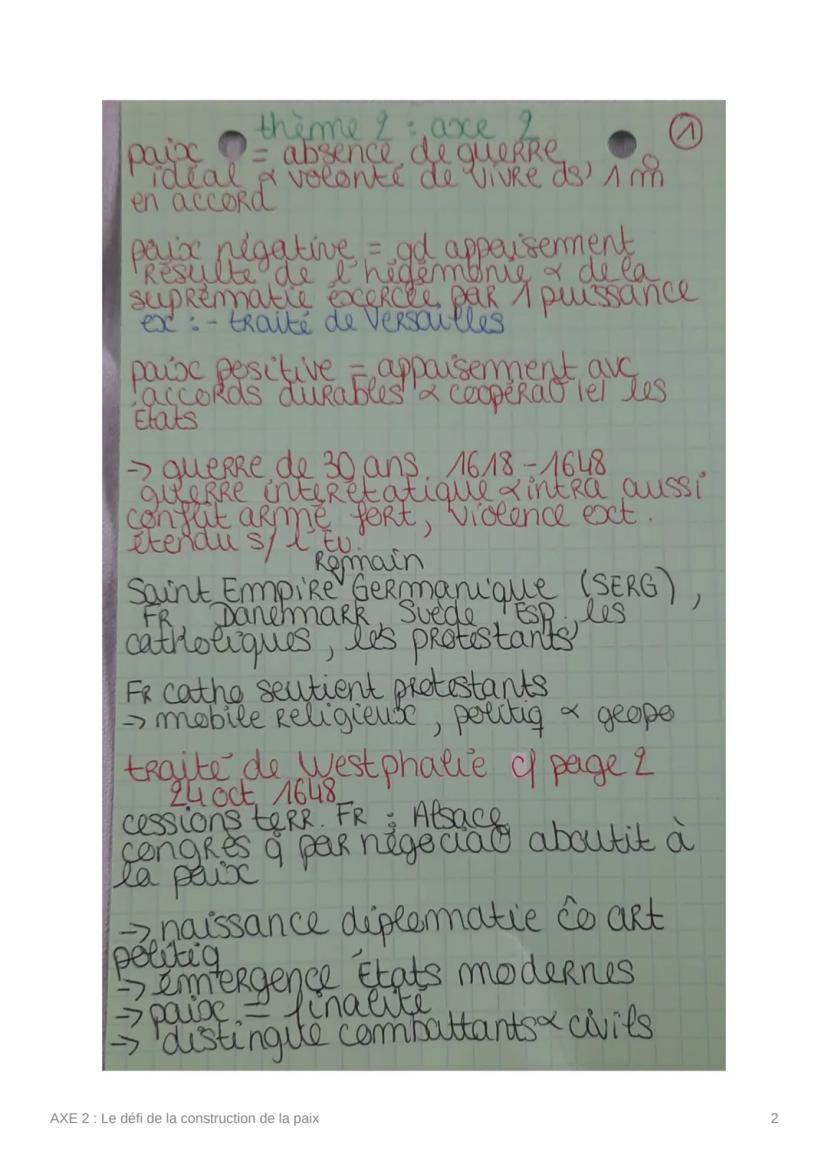 thème 2 : axe 2
1
paix = absence de guerre
idéal & volonté de vivre ds 1 m̊
en accord
paix négative = gd appaisemment
Résulte de l'hégémonie & de la
suprématie exercée par 1 puissance
ex : - traité de Versailles
paix positive = appaisemment avc
accords durables & coopéraō /e/ les
États
-> guerre de 30 ans 1618 - 1648
guerre interétatique & intra aussi
conflit armé fort, violence ext.
étendu s/ l'Eu.
Romain
Saint Empire Germanique (SERG),
FR, Danemark, Suède, ESP. les
catholiques, les protestants
FR catho soutient protestants
-> mobile religieux, politiq & geopo
traité de Westphalie cf page 2
24 oct 1648
cessions terr. FR : Alsace
congrès q̊ par négociaō aboutit à
la paix
-> naissance diplomatie c̊o art
politiq
-> émergence États modernes
-> paix = finalité
-> distingue combattants & civils
AXE 2 : Le défi de la construction de la paix
2